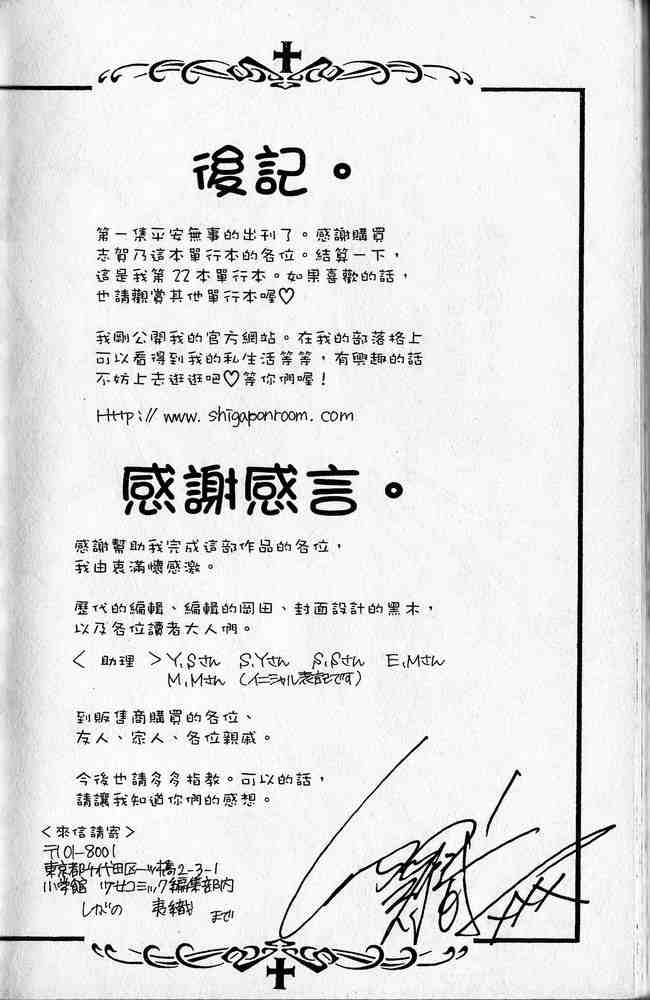 後記。
第一集平安無事的出刊了。感謝購買
志賀乃這本單行本的各位。結算一下，
這是我第22本單行本。如果喜歡的話，
也請觀賞其他單行本喔♡
我剛公開我的官方網站。在我的部落格上
可以看得到我的私生活等等，有興趣的話
不妨上去逛逛吧♡等你們喔！
Http://www.shigaponroom.com
感謝感言。
感謝幫助我完成這部作品的各位，
我由衷滿懷感激。
歷代的編輯、編輯的岡田、封面設計的黑木，
以及各位讀者大人們。
＜助理＞Y,Sさん S,Yさん S,Sさん E,Mさん
M,Mさん（イニシャル表記です）
到販售商購買的各位、
友人、家人、各位親戚。
今後也請多多指教。可以的話，
請讓我知道你們的感想。
＜來信請寄＞
〒101-8001
東京都千代田区一ツ橋2-3-1
小学館 少女コミック編集部内
しがの 夷織 まで